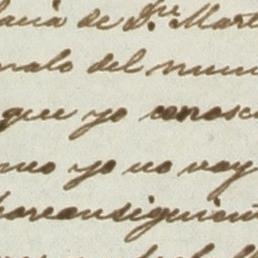 laria de Sra Mart
malo del mun
que yo conosc
mo yo no vay
porconsiguient